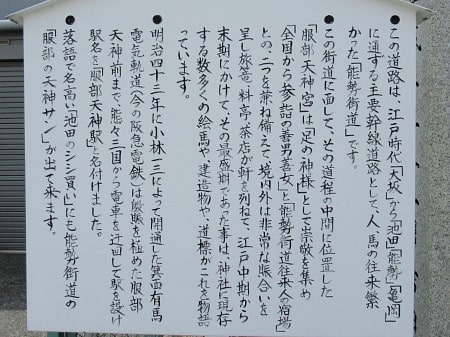 ●この道路は、江戸時代「大坂」から池田「能勢」「亀岡」
に通する主要幹線道路として、人、馬の往来繁
かった「能勢街道」です。
●この街道に面して、その道程の中間に位置した
「服部天神宮」は「足の神様」として崇敬を集め
「全国から参詣の善男善女」と「能勢街道往来人の宿場」
との、二つを兼ね備えて、境内外は非常な賑合いを
呈し旅篭、料亭、茶店が軒を列ねて、江戸中期から
末期にかけて、その最盛期であった事は、神社に現存
する数多くの絵馬や、建造物や、道標がこれを物語
っています。
●明治四十三年に小林一三によって開通した箕面有馬
電気軌道(今の阪急電鉄)は殷賑を極めた服部
天神前まで、態々三国から電車を迂回して駅を設け
駅名を「服部天神駅」と名付けました。
落語で名高い「池田のシシ買い」にも能勢街道の
「服部の天神サン」が出て来ます。